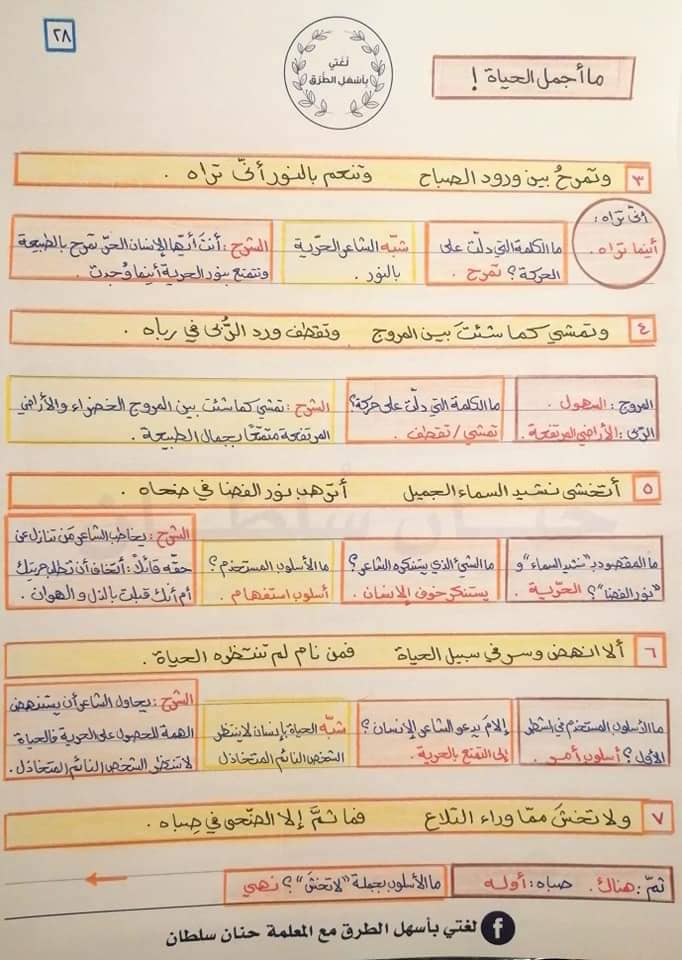 ٢٨
لغتي
بأسهل الطرق
ما أجمل الحياة !
٣ وتمرحُ بين ورود الصباح وتنعم بالنور أنّى تراه .
أنّى تراه :
أينما تراه .
ما الكلمة التي دلّت على
الحركة ؟ تمرح .
شبّه الشاعر الحرّية
بالنور .
الشرح : أنتَ أيّها الإنسان الحرّ تمرح بالطبيعة
وتتمتع بنور الحرية أينما وُجدت .
٤ وتمشي كما شئتَ بين المروج وتقطف ورد الرُّبى في رباه .
المروج : السهول .
الرّبى : الأراضي المرتفعة .
ما الكلمة التي دلّت على حركة ؟
تمشي / تقطف .
الشرح : تمشي كما شئت بين المروج الخضراء والأراضي
المرتفعة متمتعًا بجمال الطبيعة .
٥ أتخشى نشيد السماء الجميل أترهب نور الفضا في ضحاه .
ما المقصود بـ "نشيد السماء" و
"نور الفضا" ؟ الحرّية .
ما الشيء الذي يستنكره الشاعر ؟
يستنكر خوف الإنسان .
ما الأسلوب المستخدم ؟
أسلوب استفهام .
الشرح : يخاطب الشاعر مَن تنازل عن
حقّه قائلًا : أتخاف أن تطلب حريتك
أم أنك قبلت بالذل والهوان .
٦ ألا انهض وسر في سبيل الحياة فمن نام لم تنتظره الحياة .
ما الأسلوب المستخدم في الشطر
الأول ؟ أسلوب أمر .
إلامَ يدعو الشاعر الإنسان ؟
إلى التمتع بالحرية .
شبّه الحياة بإنسان لا ينتظر
الشخص النائم المتخاذل
الشرح : يحاول الشاعر أن يستنهض
الهمة للحصول على الحرية فالحياة
لا تنتظر الشخص النائم المتخاذل .
٧ ولا تخشَ ممّا وراء التلاع فما ثمَّ إلا الضّحى في صِباه .
ثمّ : هناك . صباه : أوله
ما الأسلوب بجملة "لا تخشَ" ؟ نهي
لغتي بأسهل الطرق مع المعلمة حنان سلطان